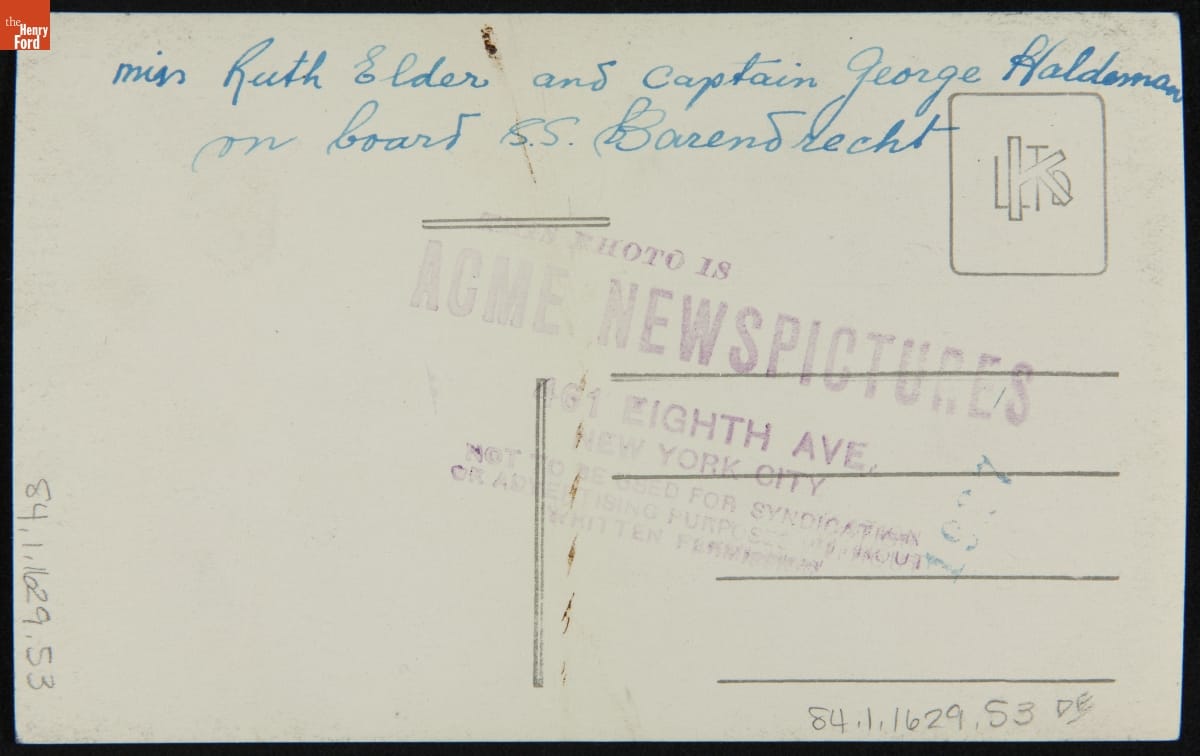 the
Henry
Ford
miss Ruth Elder and captain George Haldeman
on board S.S. Barendrecht
LTD
K
THIS PHOTO IS
ACME NEWSPICTURES
461 EIGHTH AVE.
NEW YORK CITY
NOT TO BE USED FOR SYNDICATION
OR ADVERTISING PURPOSES WITHOUT
WRITTEN PERMISSION
84.1.1629.53
84.1.1629.53 DE